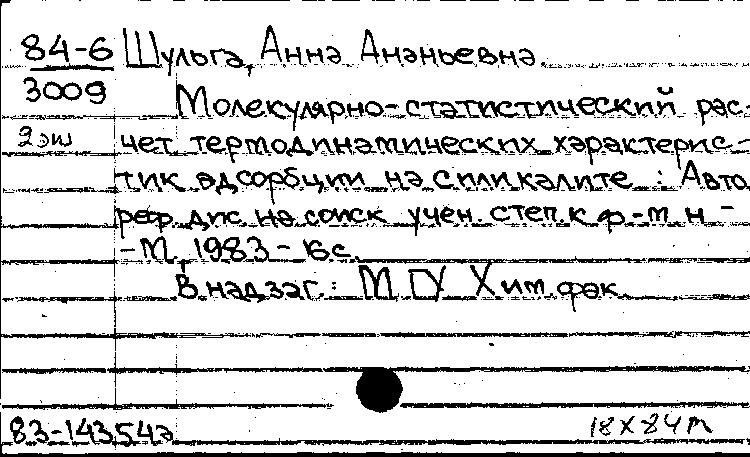 84-6 Шульга, Анна Ананьевна.
3009
Молекулярно-статистический рас-
2 экз чет термодинамических характерис-
тик адсорбции на силикалите : Авто
реф. дис. на соиск. учен. степ. к. ф.-м. н -
- М., 1983 - 16 с.
В надзаг.: МГУ Хим. фак.
83-14354а
18 X 84 г.